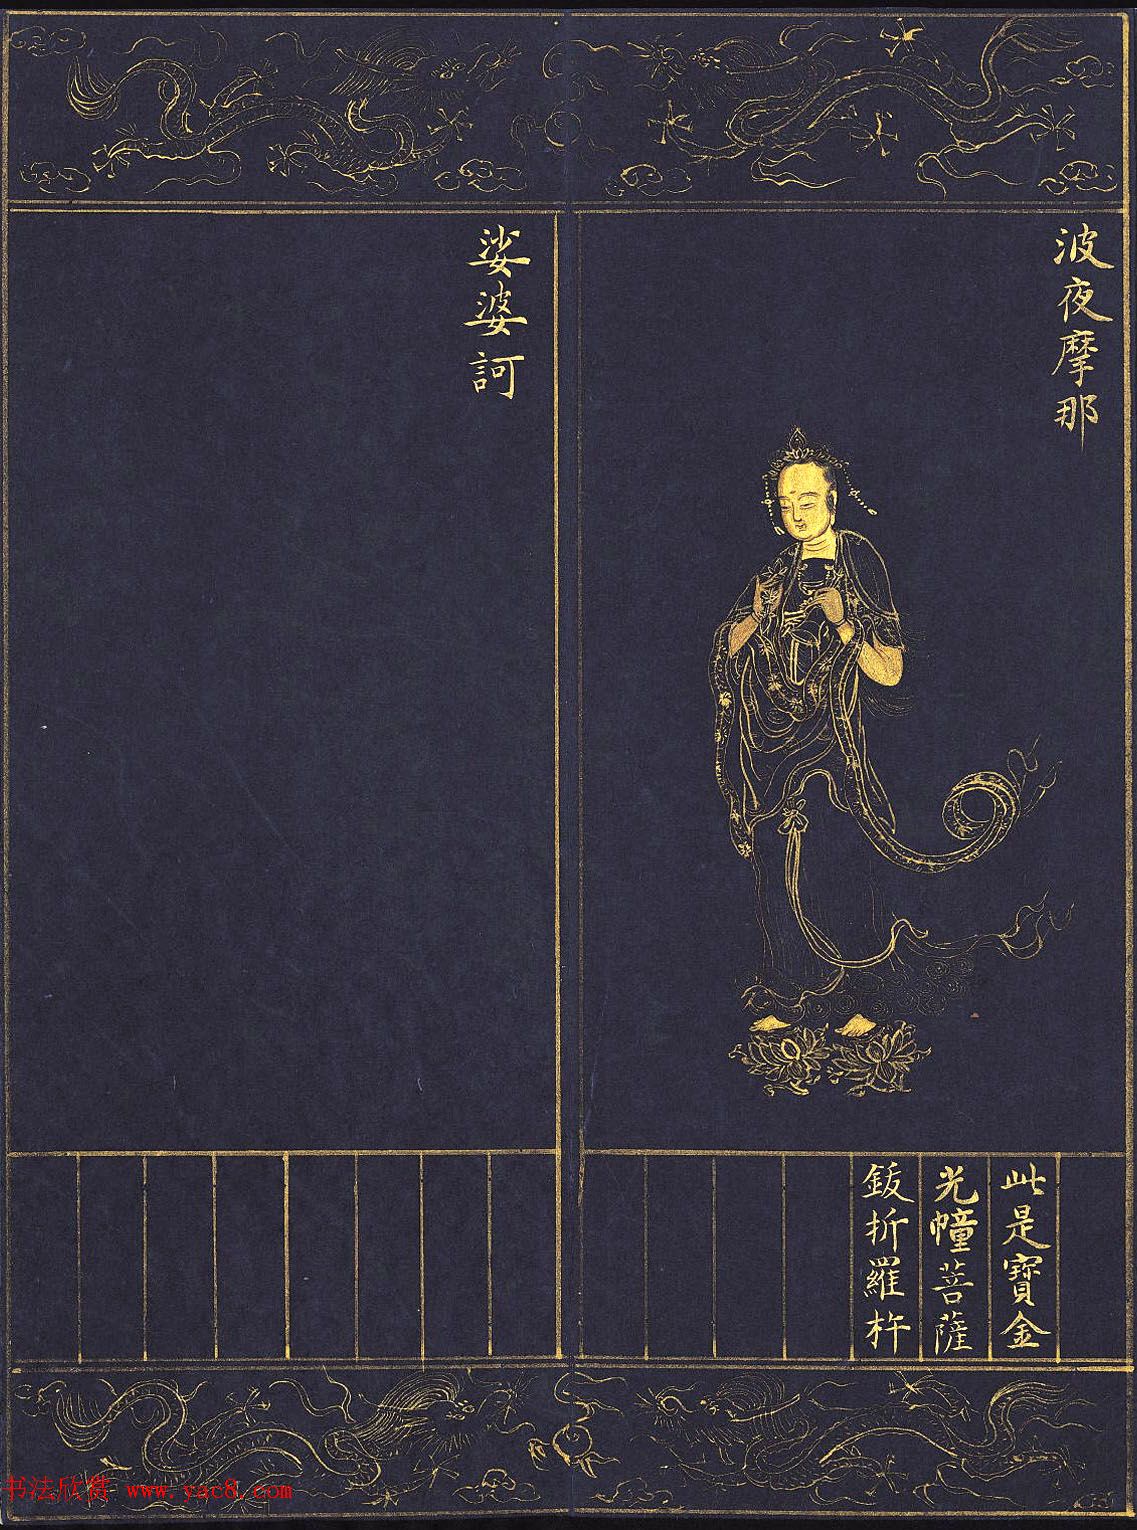 波夜摩那
此是寶金
光幢菩薩
鈸折羅杵
娑婆訶
书法欣赏 www.yac8.com